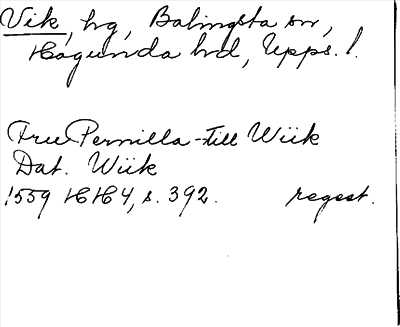 Vik, hg, Balingsta sn,
Hagunda hd, Upps. l.
Fru Pernilla till Wiik
Dat. Wiik
1559 HH 4, s. 392. regest.